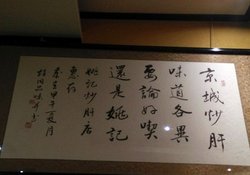 京城炒肝
味道各異
要論好喫
還是姚記
姚記炒肝店
惠存
甲午夏月